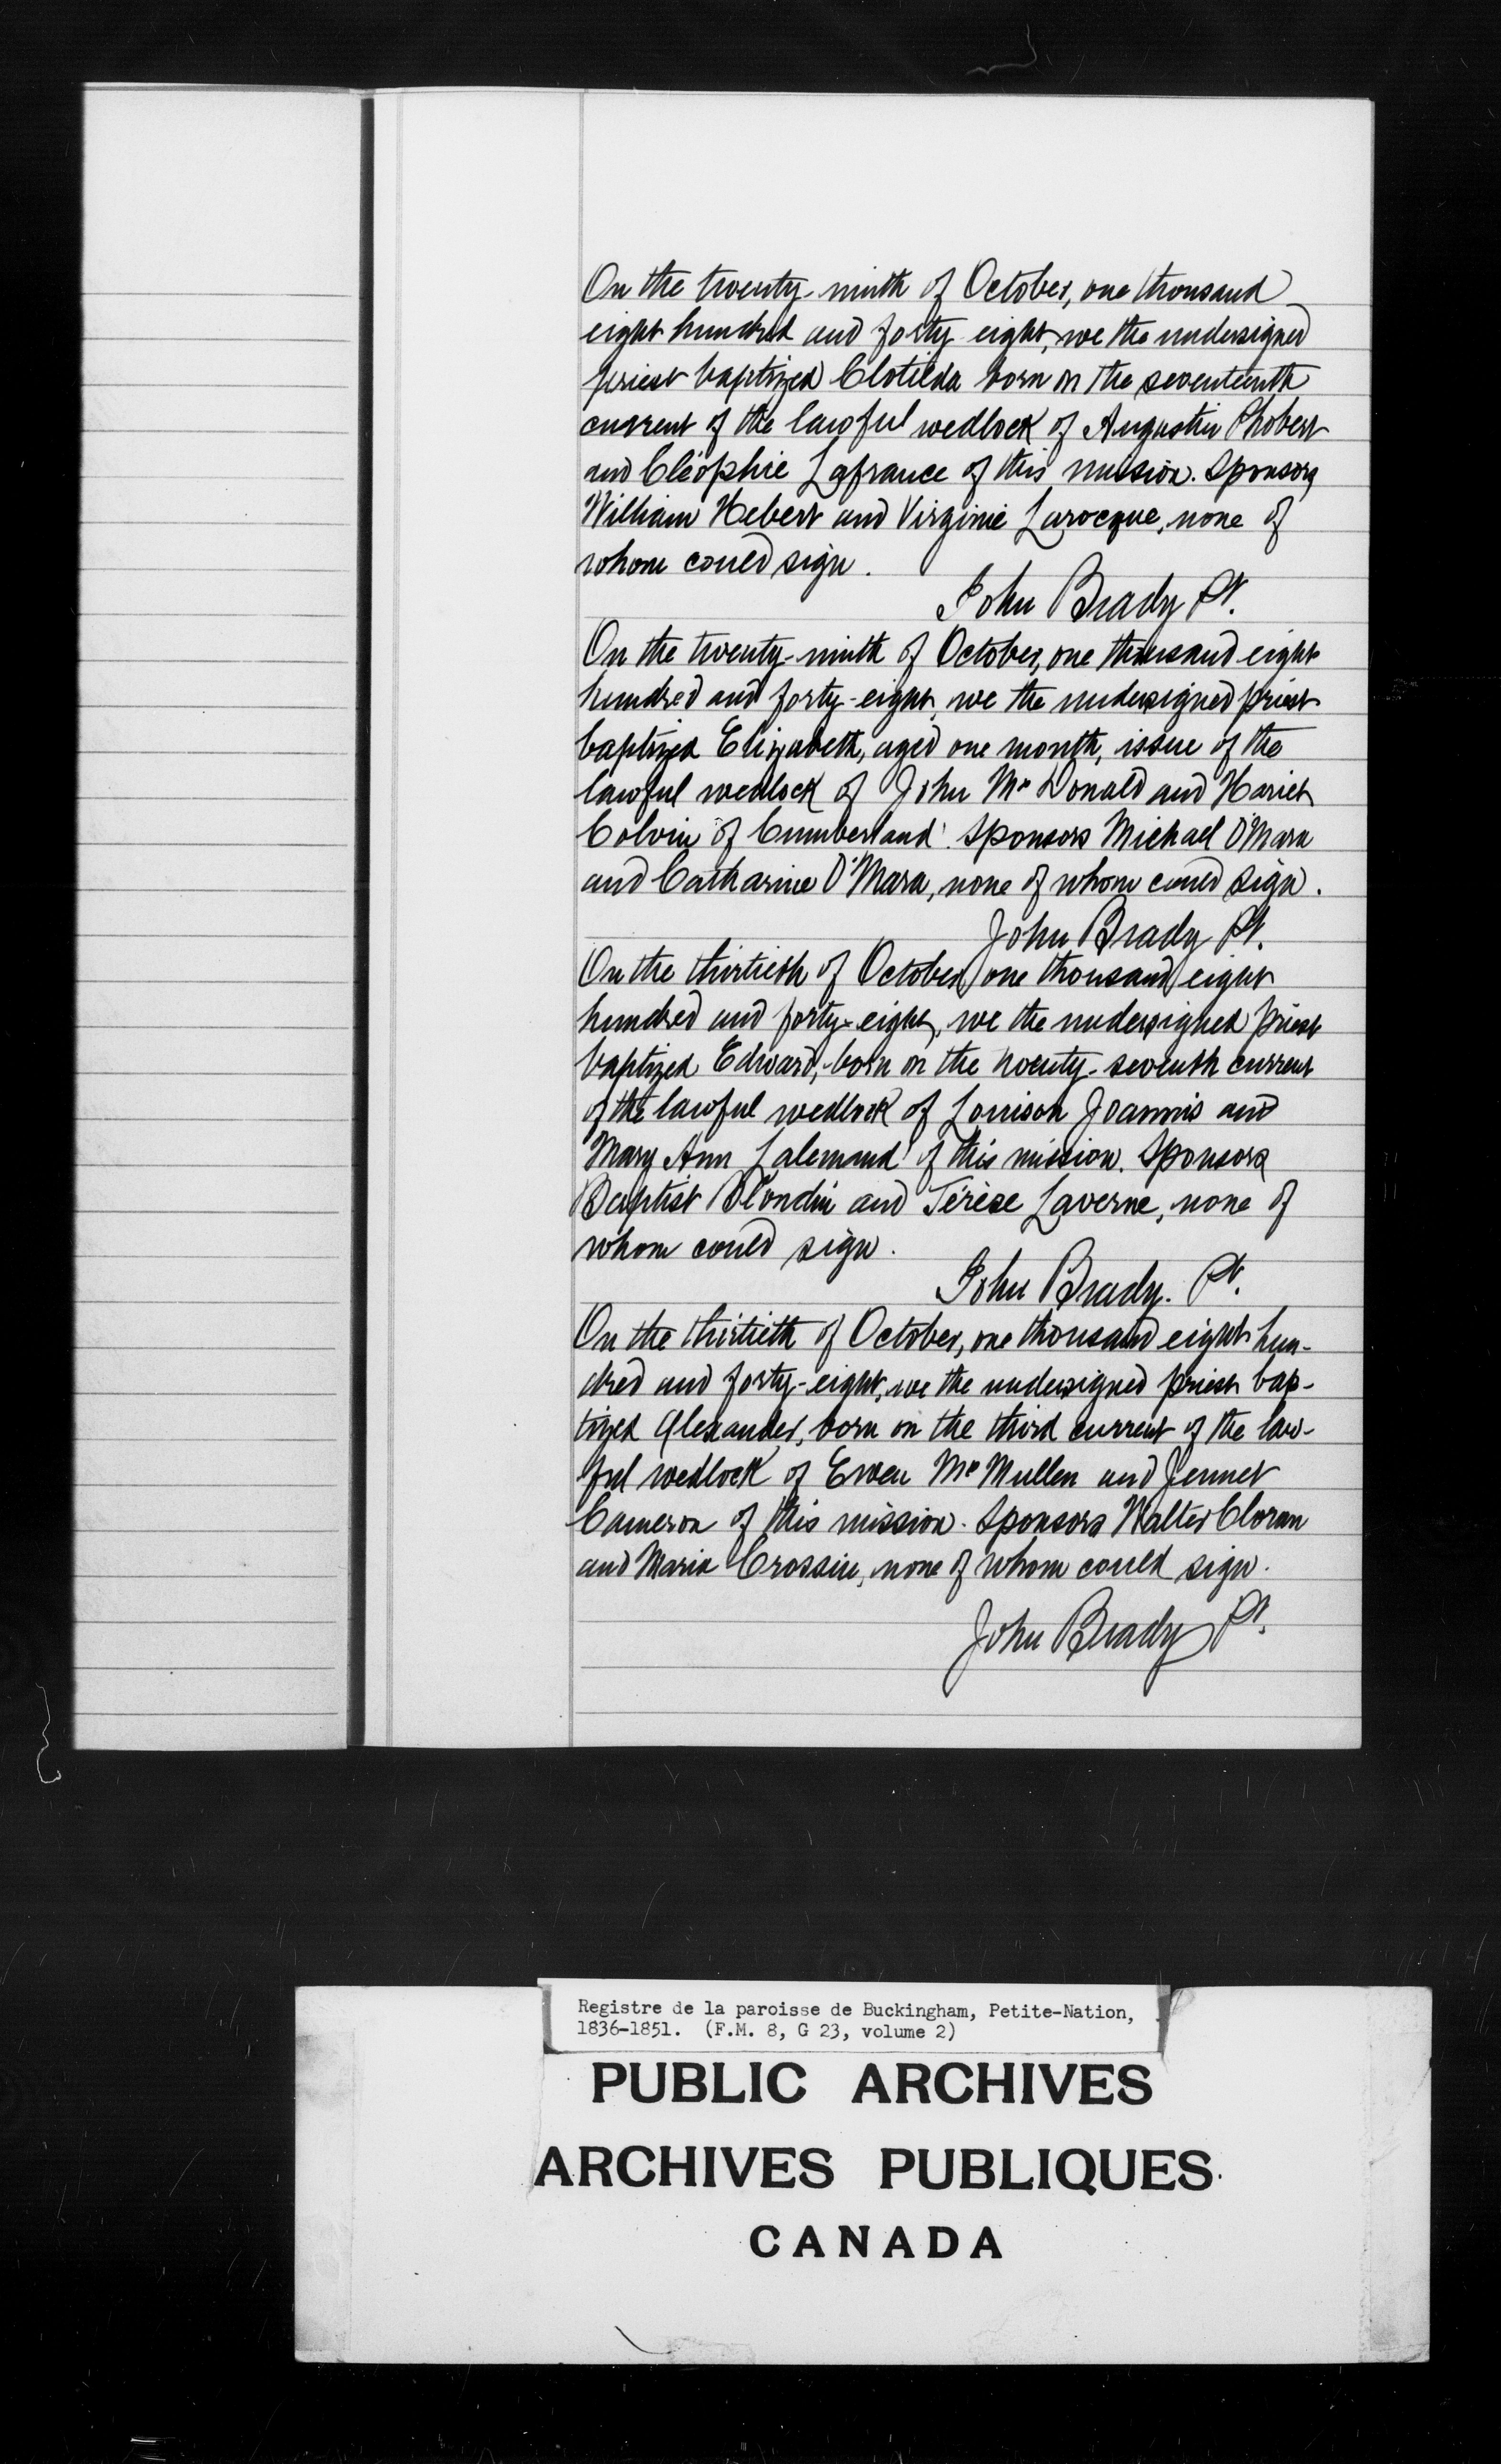 On the twenty-ninth of October, one thousand
eight hundred and forty eight, we the undersigned
priest baptized Clotilda born on the seventeenth
current of the lawful wedlock of Augustin Phobert
and Cléophie Lafrance of this mission. Sponsors
William Hebert and Virginie Larocque, none of
whom could sign.
John Brady Pt.
On the twenty-ninth of October, one thousand eight
hundred and forty-eight, we the undersigned priest
baptized Elizabeth, aged one month, issue of the
lawful wedlock of John Mc Donald and Hariet
Colvin of Cumberland. Sponsors Michael O'Mara
and Catharine O'Mara, none of whom could sign.
John Brady Pt.
On the thirtieth of October, one thousand eight
hundred and forty-eight, we the undersigned priest
baptized Edward, born on the twenty-seventh current
of the lawful wedlock of Louison Joannis and
Mary Ann Lalemand of this mission. Sponsors
Baptist Blondin and Térèse Laverne, none of
whom could sign.
John Brady. Pt.
On the thirtieth of October, one thousand eight hun-
dred and forty-eight, we the undersigned priest bap-
tized Alexander, born on the third current of the law-
ful wedlock of Ewen Mc Mullen and Jennet
Cameron of this mission. Sponsors Walter Cloran
and Maria Crossin, none of whom could sign.
John Brady Pt.
Registre de la paroisse de Buckingham, Petite-Nation,
1836-1851. (F.M. 8, G 23, volume 2)
PUBLIC ARCHIVES
ARCHIVES PUBLIQUES
CANADA